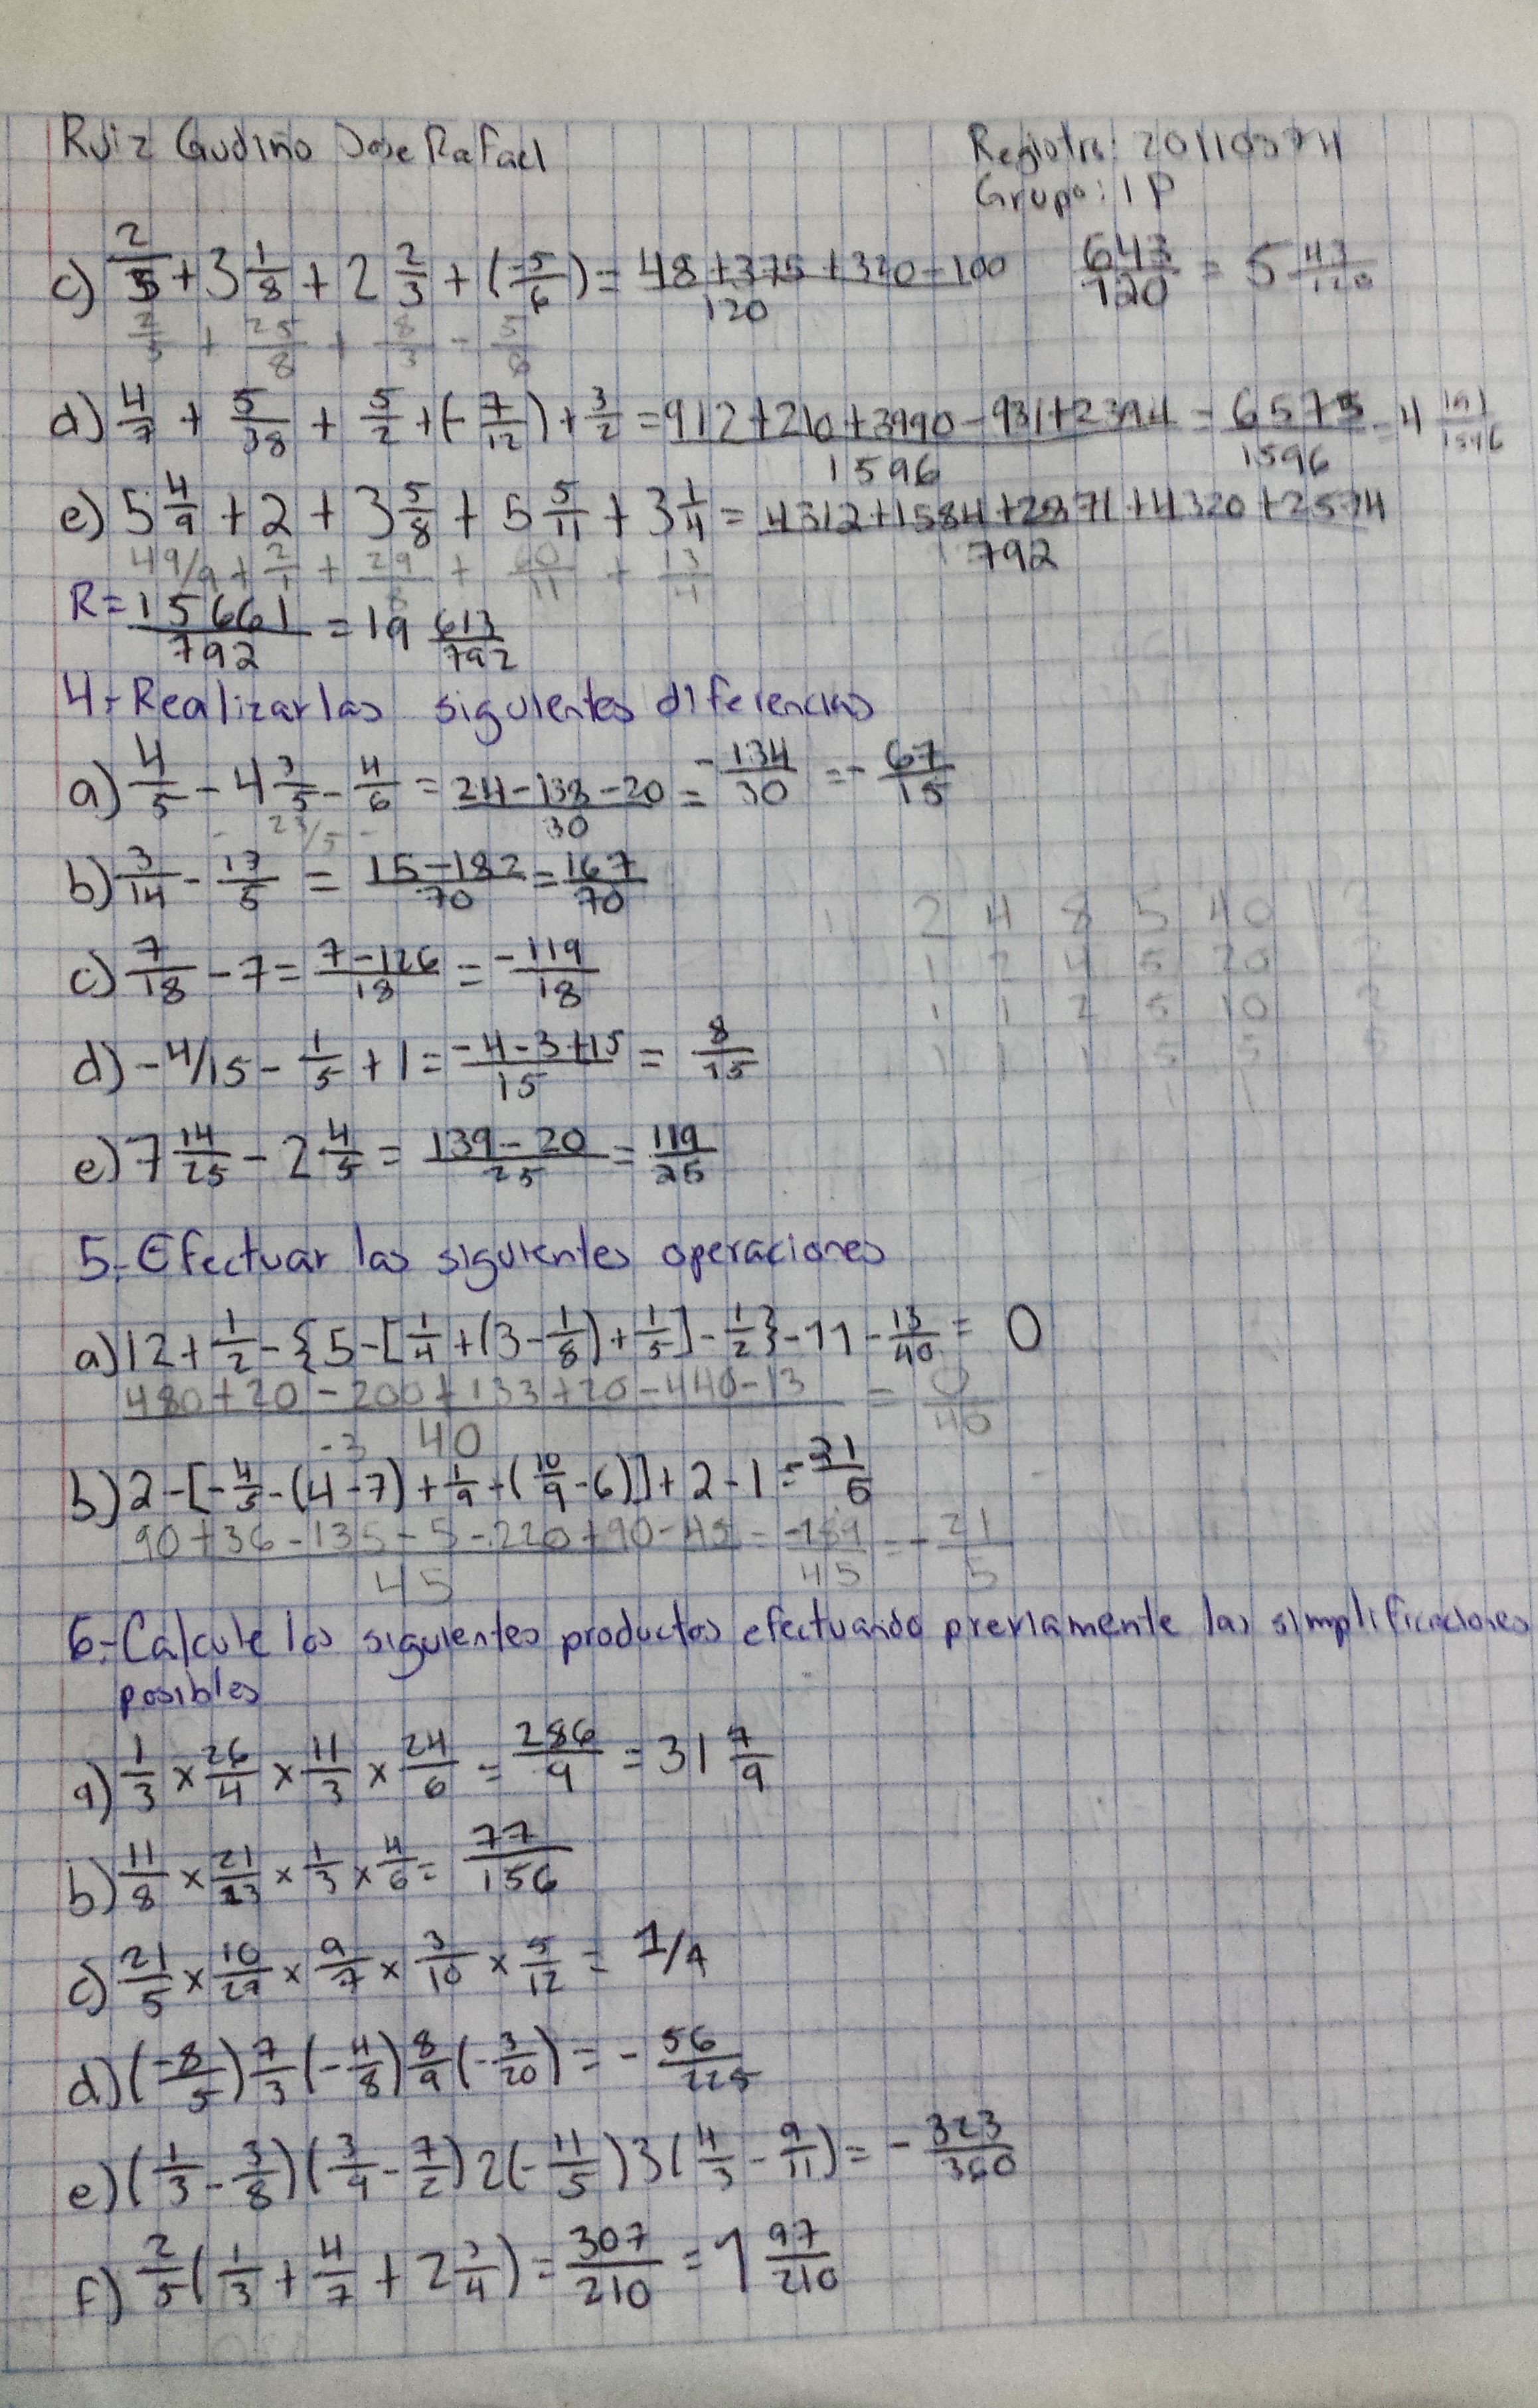 Ruiz Gudiño Jose Rafael
Registro: 20110374
Grupo: 1P
c) 2/5 + 3 1/8 + 2 2/3 + (-5/6) = 48+375+320-100/120 643/120 = 5 43/120
2/5 + 25/8 + 8/3 - 5/6
d) 4/7 + 5/38 + 5/2 + (-7/12) + 3/2 = 912+210+3990-931+2394/1596 = 6575/1596 = 4 191/1596
e) 5 4/9 + 2 + 3 5/8 + 5 5/11 + 3 1/4 = 4312+1584+2871+4320+2574/792
49/9 + 2/1 + 29/8 + 60/11 + 13/4
R = 15661/792 = 19 613/792
4.- Realizar las siguientes diferencias
a) 4/5 - 4 3/5 - 4/6 = 24-138-20/30 = -134/30 = -67/15
- 23/5 -
b) 3/14 - 13/5 = 15-182/70 = 167/70
c) 7/18 - 7 = 7-126/18 = -119/18
d) -4/15 - 1/5 + 1 = -4-3+15/15 = 8/15
e) 7 14/25 - 2 4/5 = 139-20/25 = 119/25
2 4 8 5 40 2
1 2 4 5 20 2
1 1 2 5 10 2
1 1 1 5 5 5
1 1
5.- Efectuar las siguientes operaciones
a) 12 + 1/2 - {5 - [1/4 + (3 - 1/8) + 1/5] - 1/2} - 11 - 13/40 = 0
480+20-200+133+20-440-13/40 = 0/40
-3
b) 2 - [-4/5 - (4-7) + 1/9 - (10/9 - 6)] + 2 - 1 = -21/5
90+36-135-5-220+90-45/45 = -189/45 = -21/5
6.- Calcule los siguientes productos efectuando previamente las simplificaciones
posibles
a) 1/3 × 26/4 × 11/3 × 24/6 = 286/9 = 31 7/9
b) 11/8 × 21/13 × 1/3 × 4/6 = 77/156
c) 21/5 × 10/27 × 9/7 × 3/10 × 5/12 = 1/4
d) (-8/5) 7/3 (-4/8) 8/9 (-3/20) = -56/225
e) (1/3 - 3/8)(3/4 - 7/2) 2(-11/5) 3(4/3 - 9/11) = -323/360
f) 2/5 (1/3 + 4/7 + 2 3/4) = 307/210 = 1 97/210